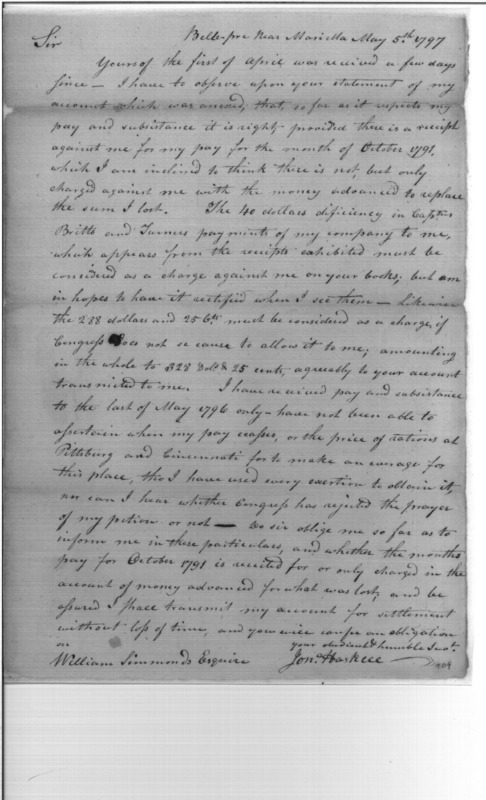 Belle-pre Near Marietta May 5th 1797
Sir
Yours of the first of April was received a few days
since — I have to observe upon your statement of my
account which was anexed, that, so far as it respects my
pay and subsistance it is right, provided there is a receipt
against me for my pay for the month of October 1791.
which I am inclined to think there is not, but only
charged against me with the money advanced to replace
the sum I lost. The 40 dollars dificiency in Capts
Britts and Turners payments of my company to me,
which appears from the receipts exhibited must be
considered as a charge against me on your books; but am
in hopes to have it rectified when I see them — Likewise
the 288 dollars and 25 Cts must be considered as a charge, if
Congress does not se cause to allow it to me; amounting
in the whole to 328 Dolls & 25 cents, agreeably to your account
transmited to me. I have received pay and subsistance
to the last of May 1796 only - have not been able to
assertain when my pay ceases, or the price of rations at
Pittsburg and Cincinnati for to make an avarage for
this place, tho I have used every exertion to obtain it,
nor can I hear whether Congress has rejected the prayer
of my petion or not — Do sir oblige me so far as to
inform me in these particulars, and whether the months
pay for October 1791 is recited for or only charged in the
account of money advanced for what was lost, and be
assured I shall transmit my account for settlement
without loss of time, and you will confer an obligation
on your obedient & humble Servt.
William Simmonds Esquire Jona. Haskell